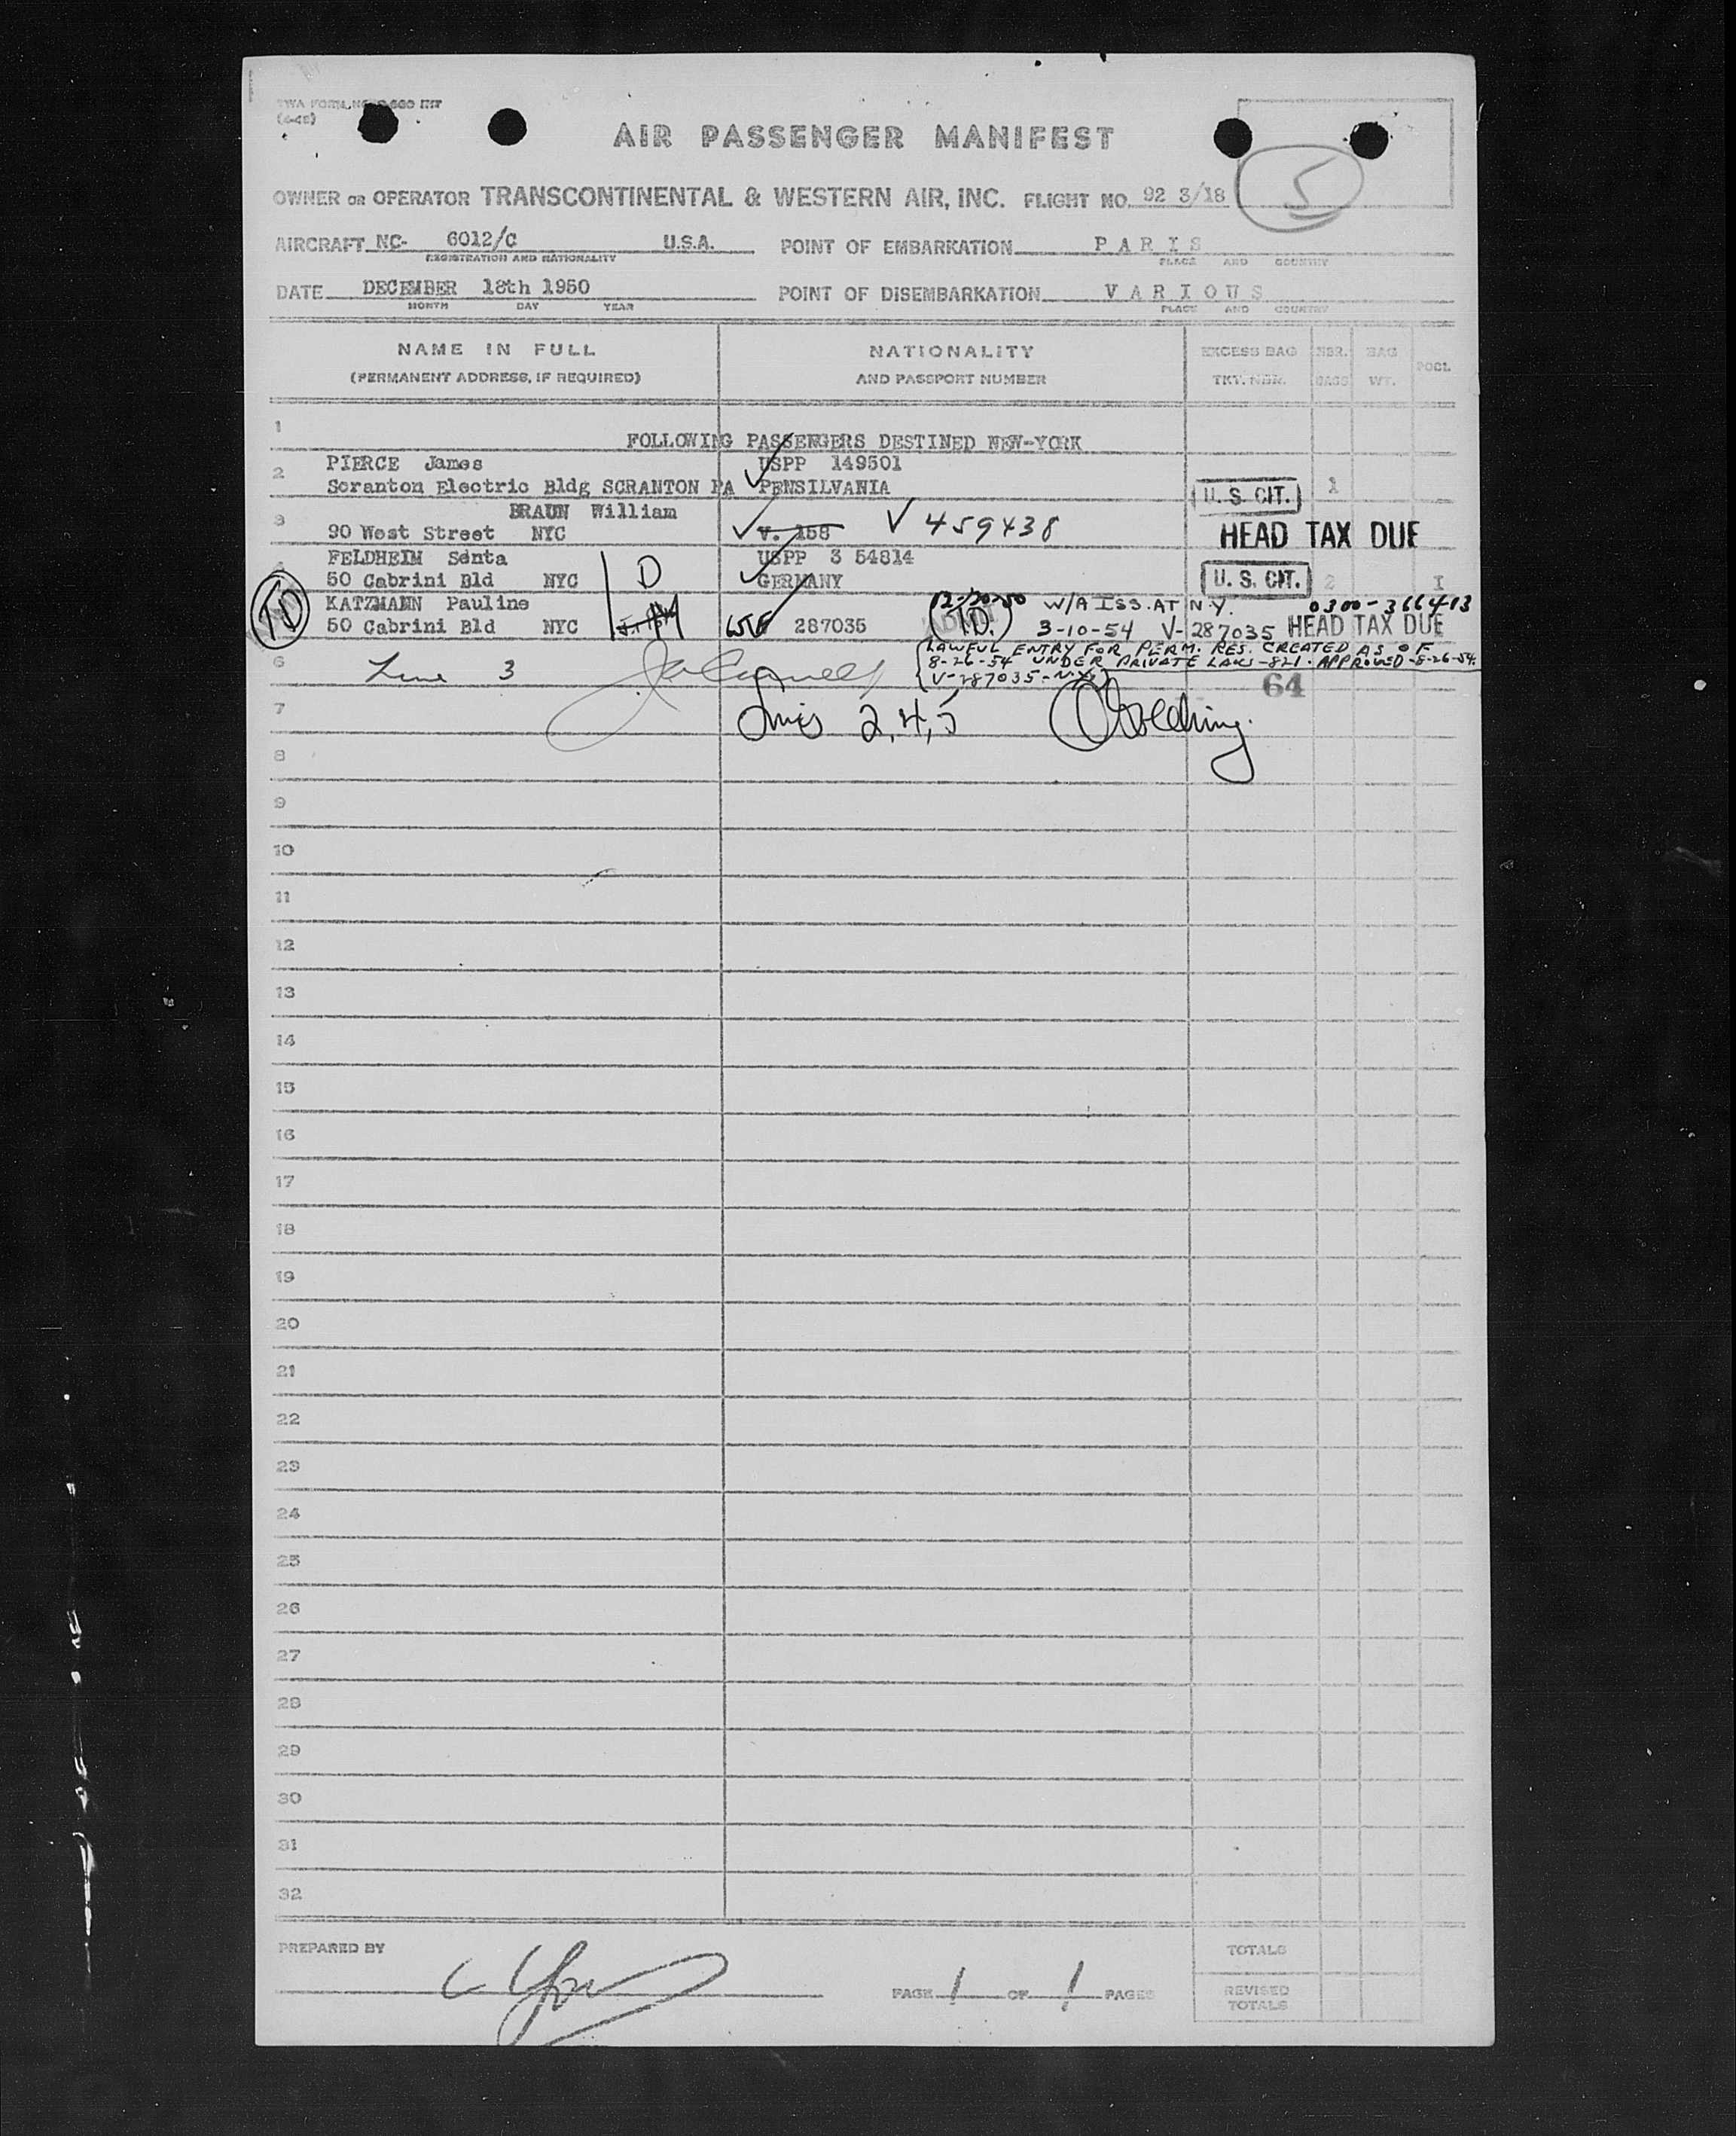 TWA FORM NO. 660 INT
(4-48)
AIR PASSENGER MANIFEST
5
OWNER OR OPERATOR TRANSCONTINENTAL & WESTERN AIR, INC. FLIGHT NO. 92 3/18
AIRCRAFT NC- 6012/C U.S.A. POINT OF EMBARKATION PARIS
REGISTRATION AND NATIONALITY PLACE AND COUNTRY
DATE DECEMBER 18th 1950 POINT OF DISEMBARKATION VARIOUS
MONTH DAY YEAR PLACE AND COUNTRY
NAME IN FULL NATIONALITY EXCESS BAG NBR. BAG POCL
(PERMANENT ADDRESS, IF REQUIRED) AND PASSPORT NUMBER TKT. NBR. BAGS WT.
1
FOLLOWING PASSENGERS DESTINED NEW-YORK
2 PIERCE James USPP 149501
Scranton Electric Bldg SCRANTON PA PENSILVANIA U. S. CIT. 1
3 BRAUN William
90 West Street NYC V. 158 V 459438 HEAD TAX DUE
4 FELDHEIM Senta D USPP 3 54814
50 Cabrini Bld NYC GERMANY U. S. CIT. 2 I
TD KATZMANN Pauline 12/20-50 W/A ISS. AT N.Y. 0300-366413
50 Cabrini Bld NYC 287035 TD. 3-10-54 V-287035 HEAD TAX DUE
LAWFUL ENTRY FOR PERM. RES. CREATED AS OF
6 Line 3 8-26-54 UNDER PRIVATE LAW-821. APPROVED-8-26-54.
V-287035-N.Y.
64
7 Lines 2,4,5
8
9
10
11
12
13
14
15
16
17
18
19
20
21
22
23
24
25
26
27
28
29
30
31
32
PREPARED BY TOTALS
PAGE 1 OF 1 PAGES REVISED
TOTALS